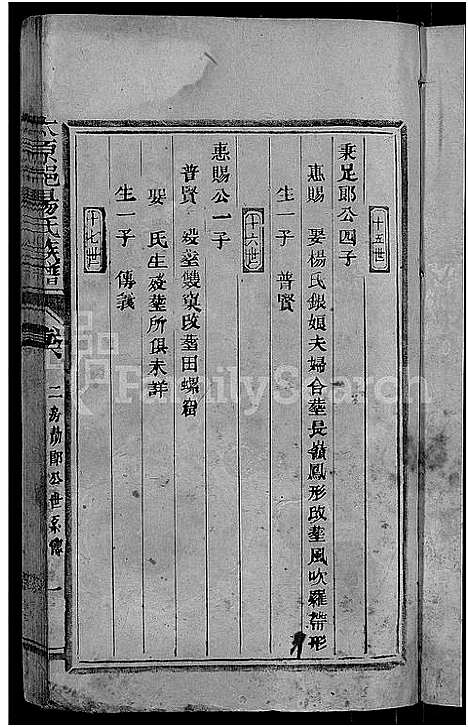 十五世
秉足郎公四子
惠賜 娶楊氏銀娘夫婦合塟長嶺鳳形改塟風吹羅帶形
生一子 普賢
十六世
惠賜公一子
普賢 歿塟雙東改塟田螺宿
娶 氏生歿塟所俱未詳
生一子 傳義
十七世
太原邑楊氏族譜
卷六
二房 郎公世系傳 一
FamilySearch